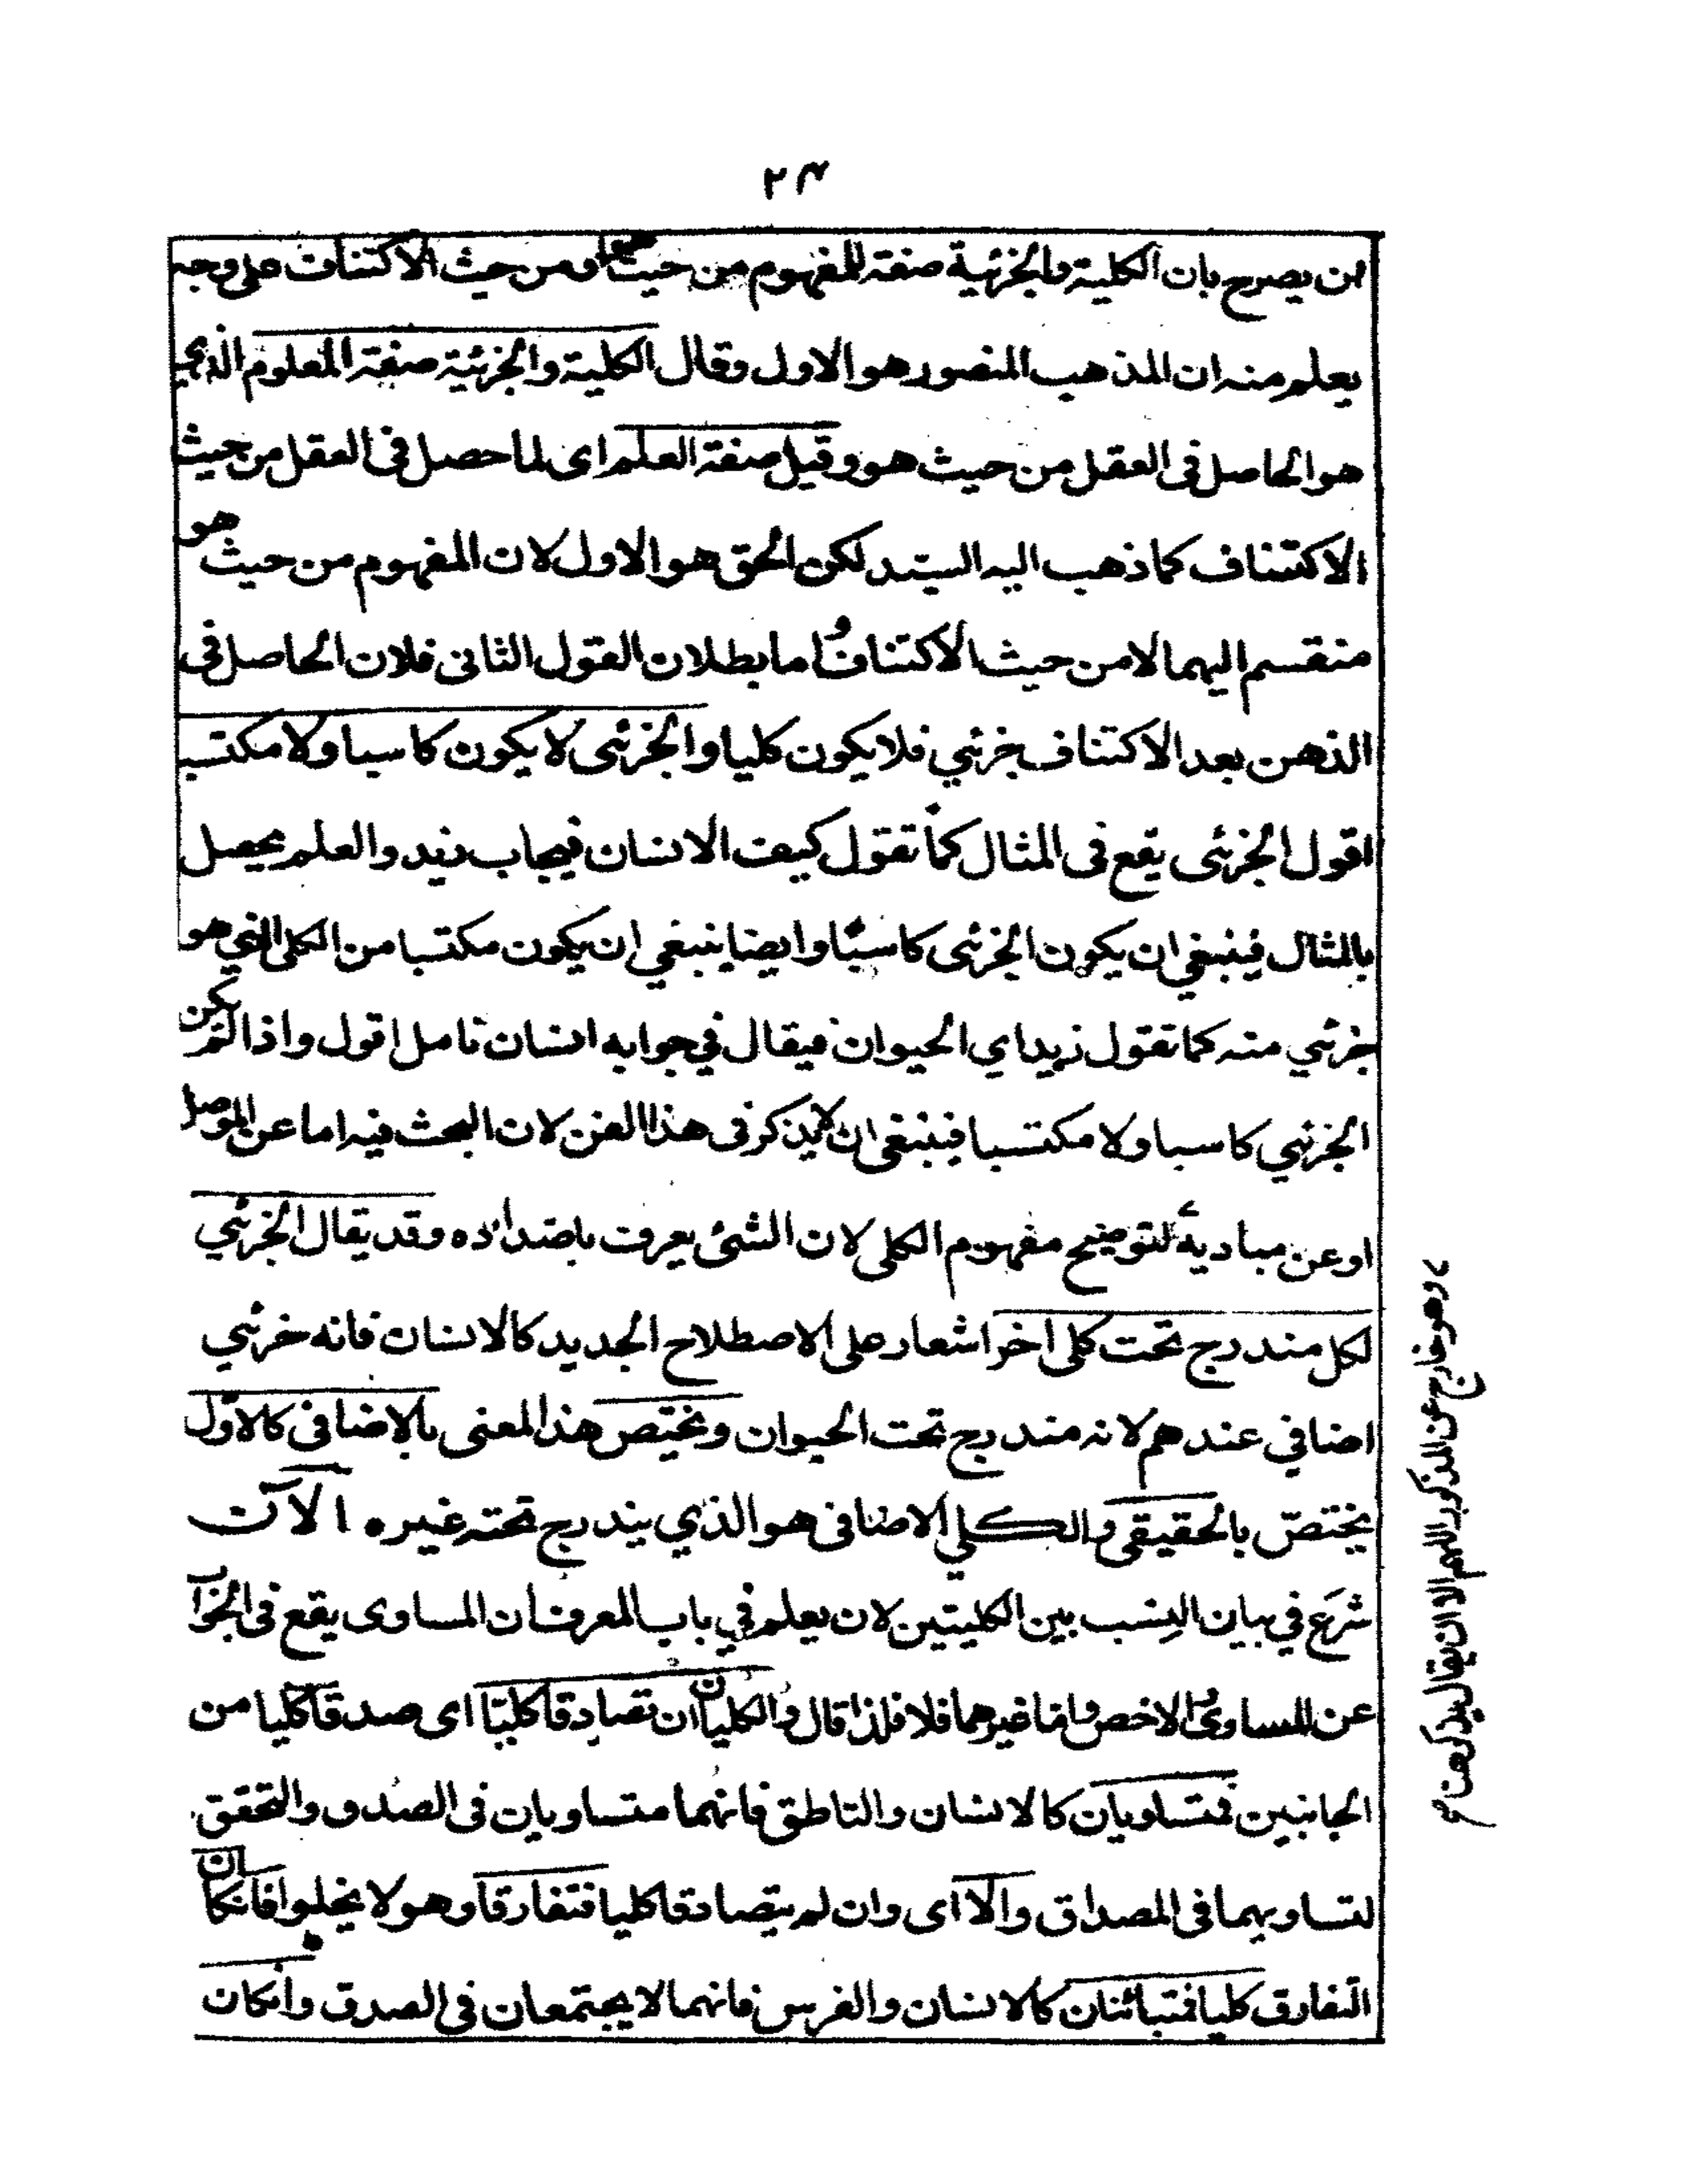 ٢٤
من يصرح بان الكلية والجزئية صفة للمفهوم من حيث هو او من حيث الاكتناف على وجه
يعلم منه ان المذهب المنصور هو الاول وقال الكلية والجزئية صفة المعلوم الذي
هو الحاصل فى العقل من حيث هو وقيل صفة العلم اى لما حصل فى العقل من حيث
الاكتناف كما ذهب اليه السيد لكن الحق هو الاول لان المفهوم من حيث هو
منقسم اليهما لا من حيث الاكتناف و اما بطلان القول الثانى فلان الحاصل فى
الذهن بعد الاكتناف جزئي فلا يكون كليا والجزئى لا يكون كاسبا ولا مكتسبا
اقول الجزئى يقع فى المثال كما تقول كيف الانسان فيجاب زيد والعلم يحصل
بالمثال فينبغي ان يكون الجزئى كاسبًا وايضا ينبغي ان يكون مكتسبا من الكلى الذي هو
جزئي منه كما تقول زيد اي الحيوان فيقال في جوابه انسان تامل اقول واذا لم يكن
الجزئي كاسبا ولا مكتسبا فينبغى ان لا يذكر فى هذا الفن لان البحث فيه اما عن الموصل
او عن مباديه لتوضيح مفهوم الكلى لان الشئ يعرف باضداده وقد يقال الجزئي
لكل مندرج تحت كلى اخر اشعار على الاصطلاح الجديد كالانسان فانه جزئي
اضافي عندهم لانه مندرج تحت الحيوان ويختص هذا المعنى بالاضافى كالاوّل
يختصّ بالحقيقى والكلي الاضافى هو الذي يندرج تحته غيره الآن
شرع في بيان النسب بين الكليتين لان يعلم في باب المعرف ان المساوى يقع فى الجواب
عن المساوى و الاخص واما غيرهما فلا فلذا قال والكليان ان تصادقا كليّا اى صدقا كليا من
الجانبين فمتساويان كالانسان والناطق فانهما متساويان فى الصدق والتحقق
لتساويهما فى المصداق والا اى وان لم يتصادقا كليا فتفارقا وهو لا يخلوا فان كان
التفارق كليا فمتبائنان كالانسان والفرس فانهما لا يجتمعان فى الصدق وان كان
وهو خارج عن المذكور اللهم الا ان يقال يذكر